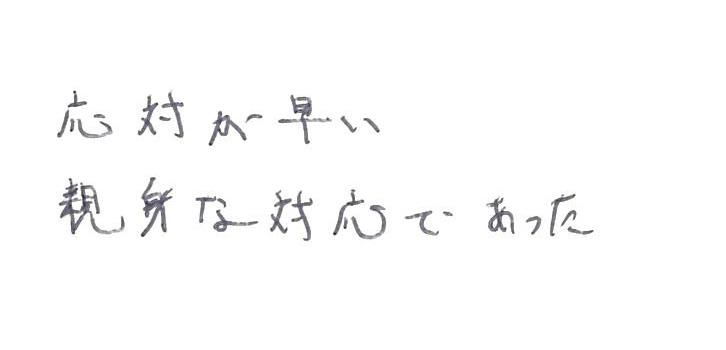 応対が早い
親身な対応であった